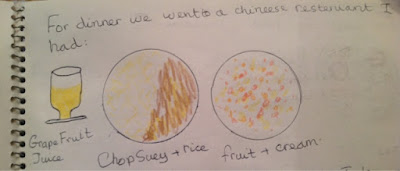 For dinner we went to a chineese restenuant I
had:
GrapeFruit
Juice.
Chop Suey + rice
fruit + cream.